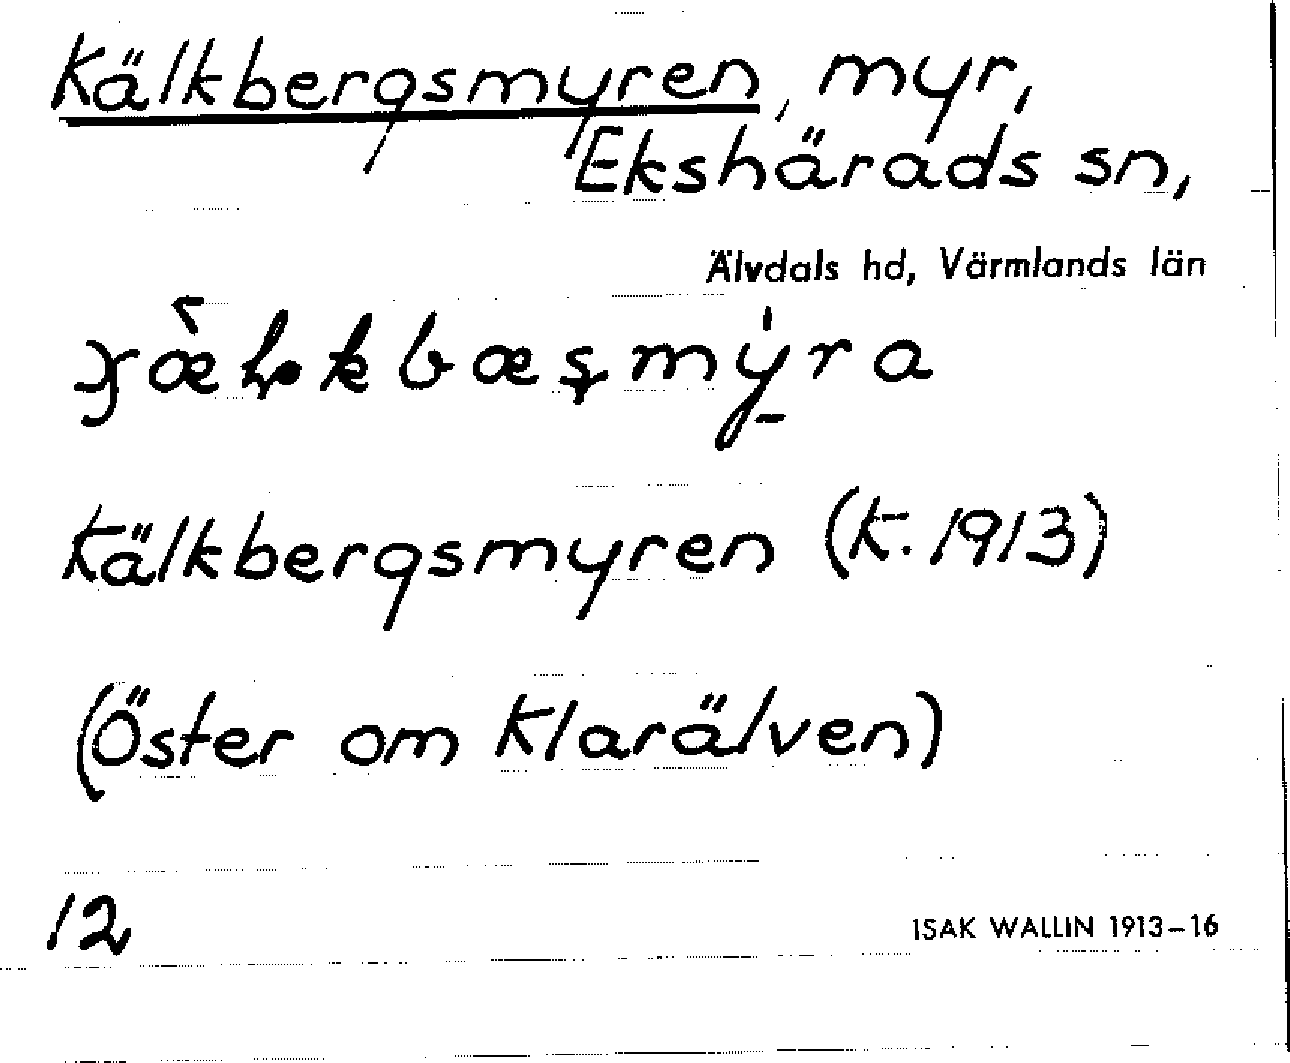 Kälkbergsmyren, myr,
Ekshärads sn,
Älvdals hd, Värmlands län
Kälkbergsmyren (k. 1913)
(Öster om Klarälven)
12
ISAK WALLIN 1913-16